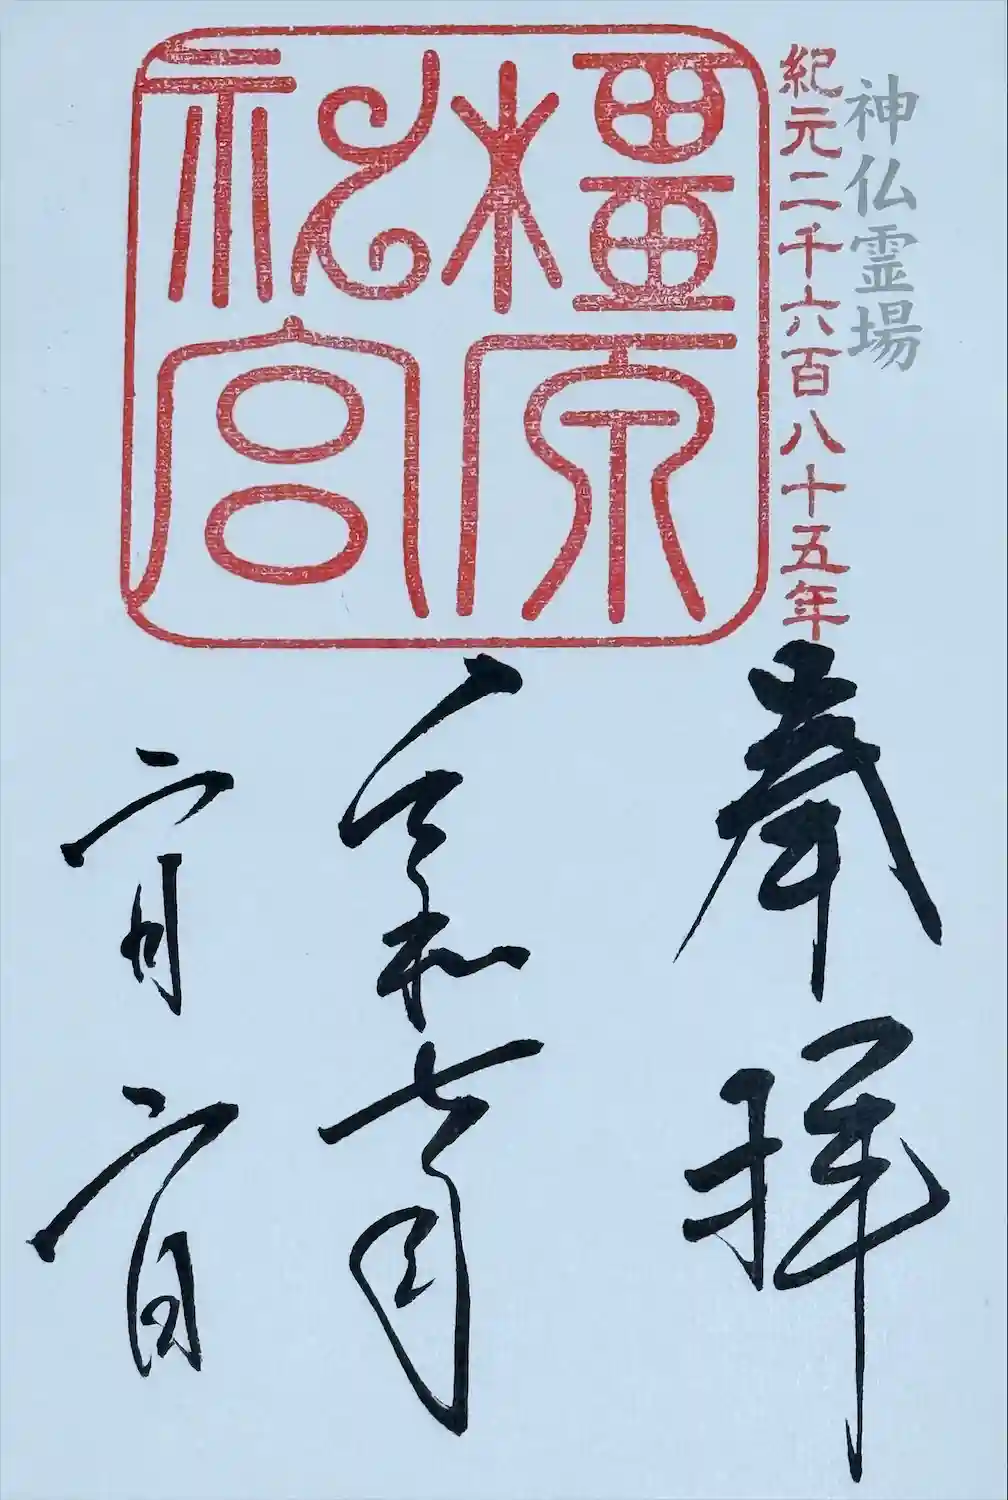 神仏霊場
紀元二千六百八十五年
橿原
神宮
奉拝
令和七年
二月二日